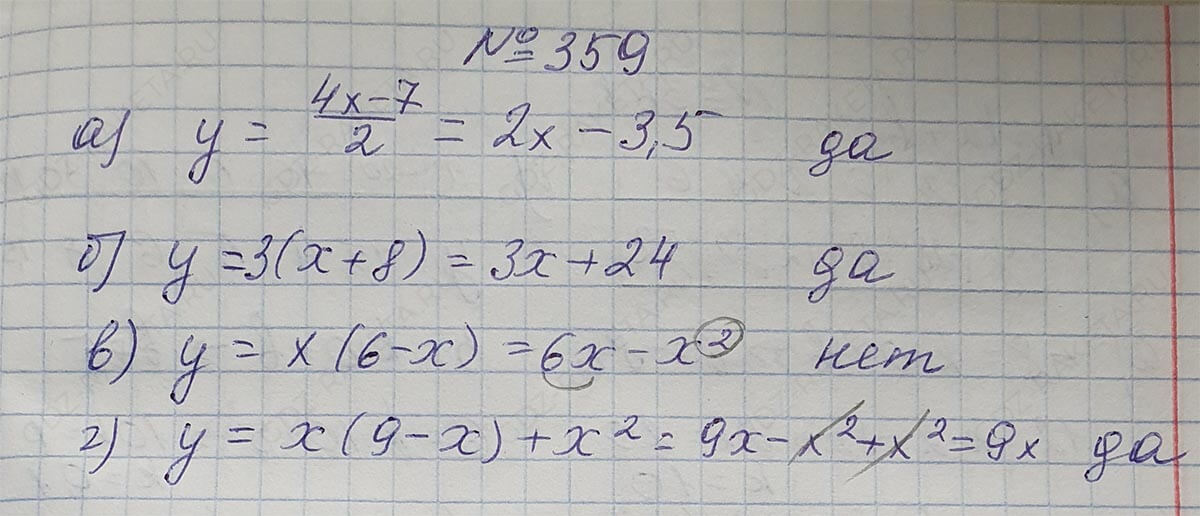 № 359
а) y = \frac{4x-7}{2} = 2x - 3,5 да
б) y = 3(x + 8) = 3x + 24 да
в) y = x (6 - x) = 6x - x² нет
г) y = x (9 - x) + x² = 9x - x² + x² = 9x да